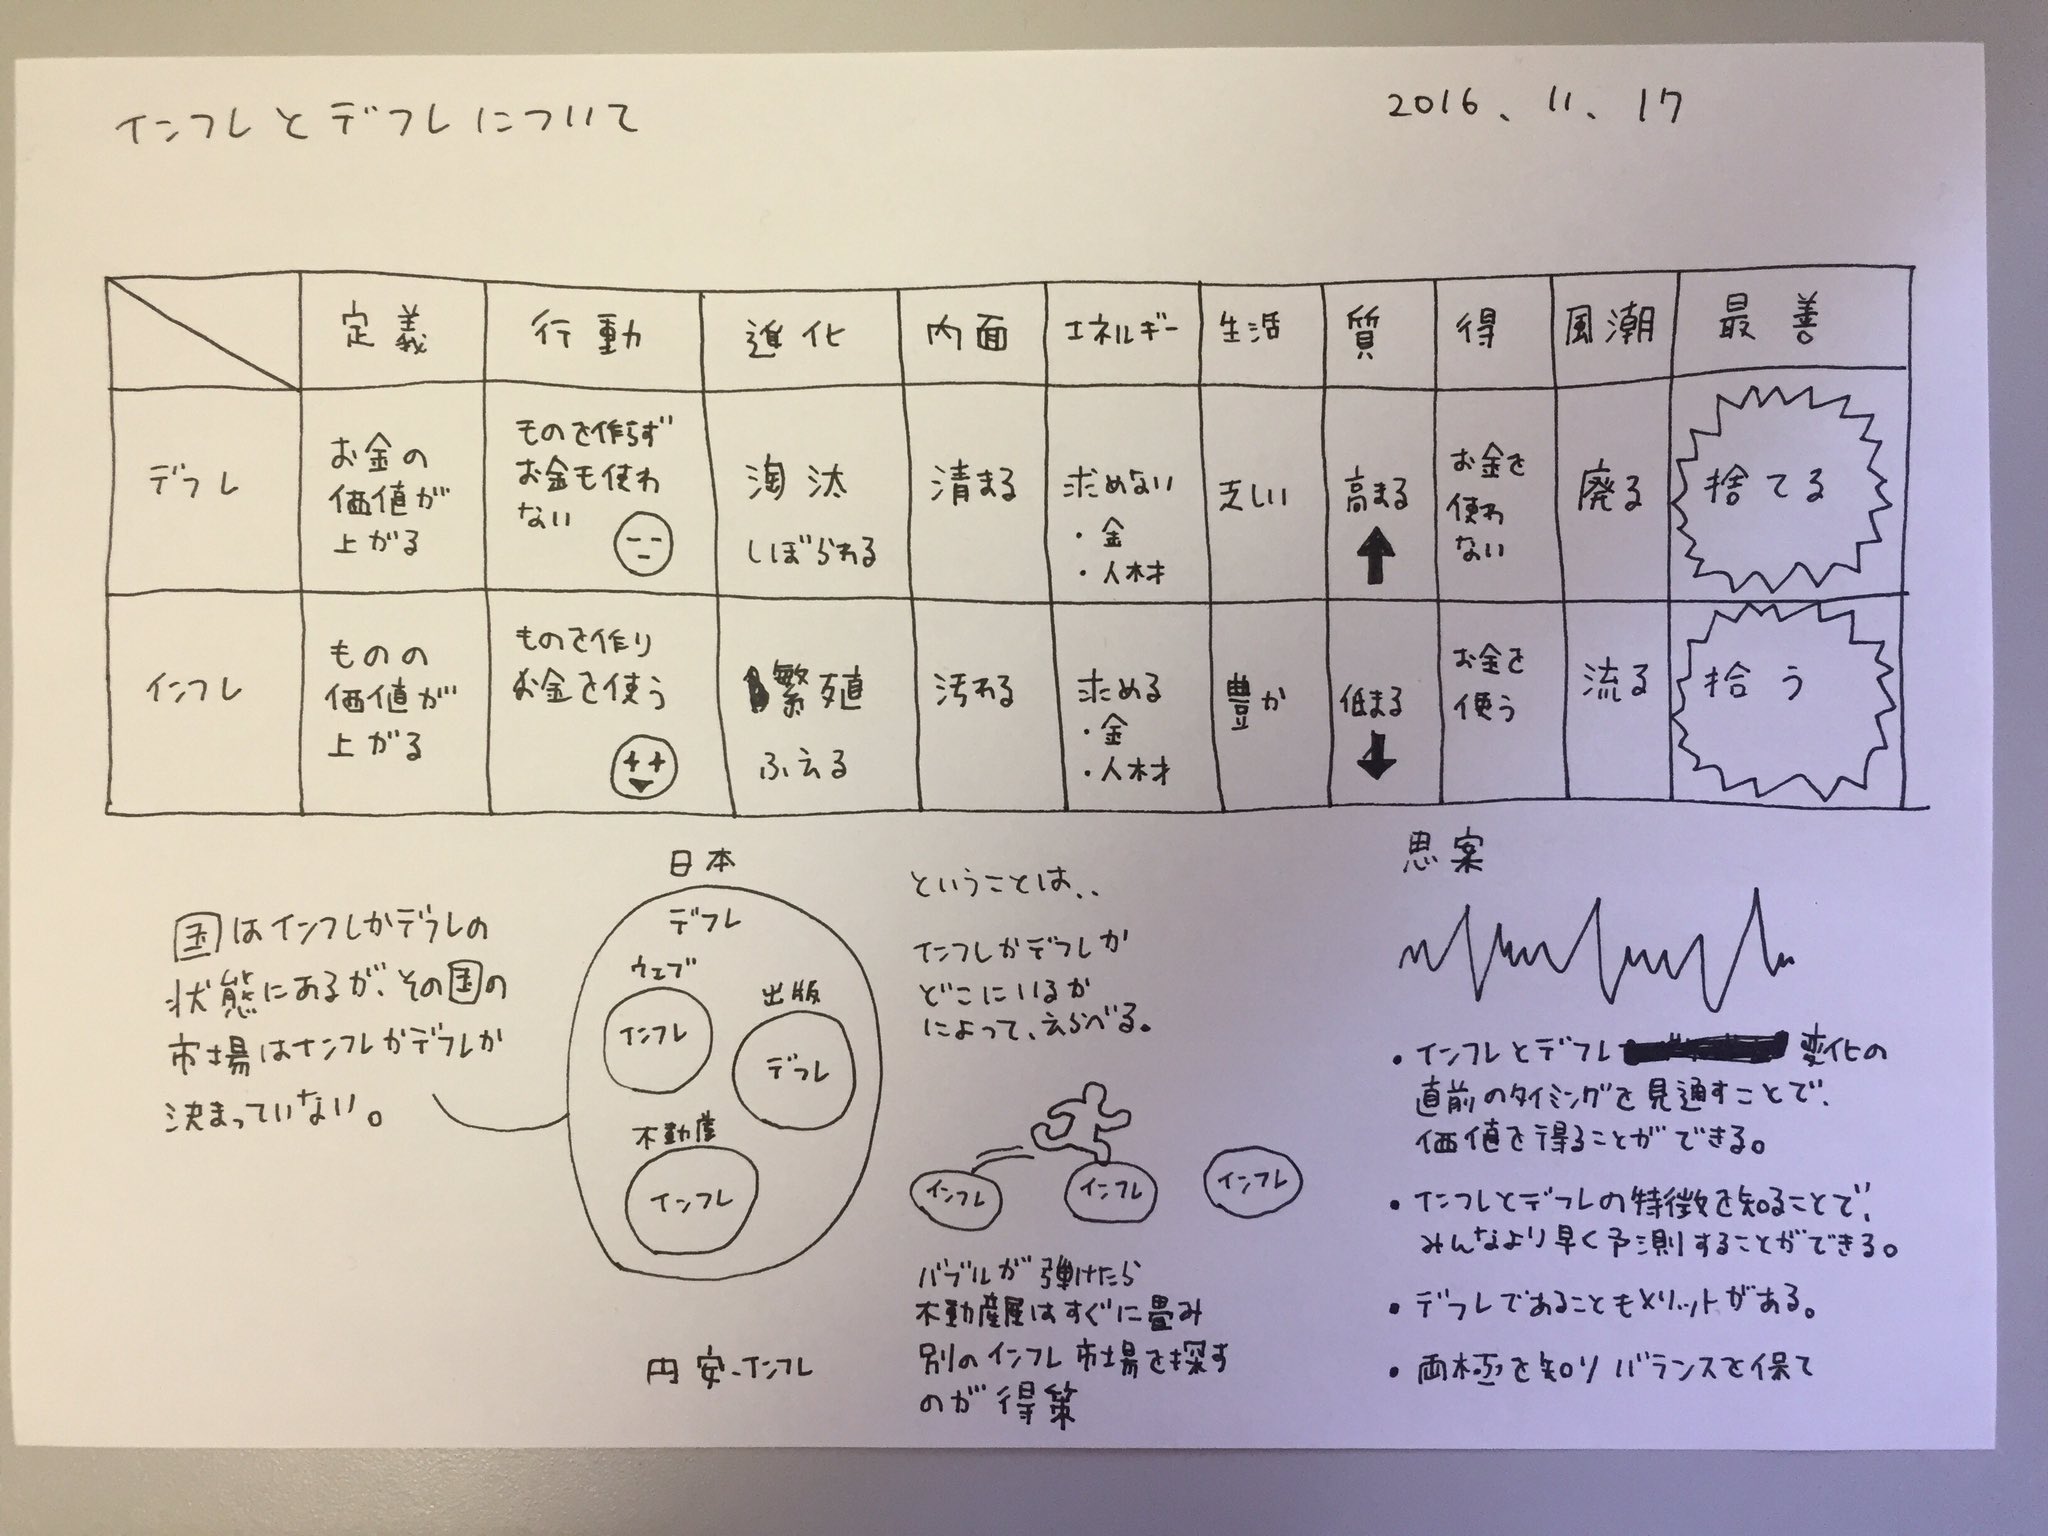 インフレとデフレについて
2016、11、17
定義 行動 進化 内面 エネルギー 生活 質 得 風潮 最善
デフレ
お金の
価値が
上がる
ものを作らず
お金も使わ
ない
淘汰
しぼられる
清まる
求めない
・金
・人材
乏しい
高まる
お金を
使わ
ない
廃る
捨てる
インフレ
ものの
価値が
上がる
ものを作り
お金を使う
繁殖
ふえる
汚れる
求める
・金
・人材
豊か
低まる
お金を
使う
流る
拾う
国はインフレかデフレの
状態にあるが、その国の
市場はインフレかデフレか
決まっていない。
日本
デフレ
ウェブ
インフレ
出版
デフレ
不動産
インフレ
円安-インフレ
ということは、、
インフレかデフレか
どこにいるか
によって、えらべる。
インフレ
インフレ
インフレ
バブルが弾けたら
不動産屋はすぐに畳み
別のインフレ市場を探す
のが得策
思案
・インフレとデフレ 変化の
直前のタイミングを見通すことで、
価値を得ることができる。
・インフレとデフレの特徴を知ることで、
みんなより早く予測することができる。
・デフレであることもメリットがある。
・両極を知りバランスを保て